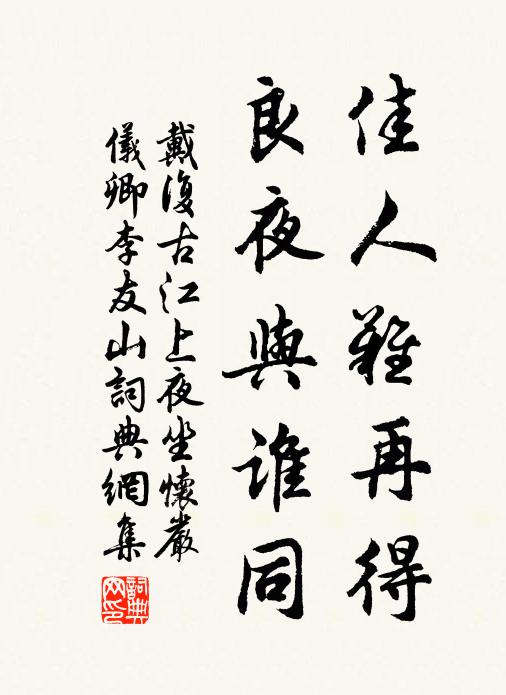 佳人難再得
良夜與誰同
戴復古江上夜坐懷嚴
儀卿李友山詞典網集
詞典
网印